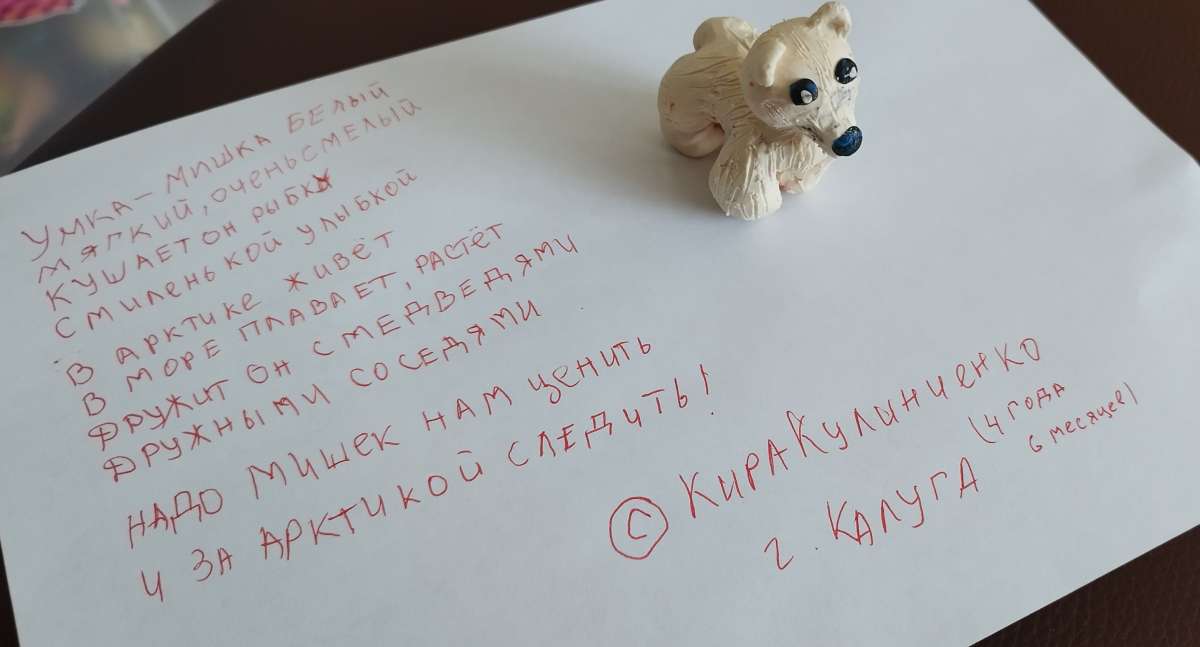 УМКА - МИШКА БЕЛЫЙ
МЯГКИЙ, ОЧЕНЬ СМЕЛЫЙ
КУШАЕТ ОН РЫБКУ
С МИЛЕНЬКОЙ УЛЫБКОЙ
В АРКТИКЕ ЖИВЁТ
В МОРЕ ПЛАВАЕТ, РАСТЁТ
ДРУЖИТ ОН С МЕДВЕДЯМИ
ДРУЖНЫМИ СОСЕДЯМИ
НАДО МИШЕК НАМ ЦЕНИТЬ
И ЗА АРКТИКОЙ СЛЕДИТЬ!
© КИРА КУЛИНИЧЕНКО
г. КАЛУГА (4 ГОДА
6 месяцев)